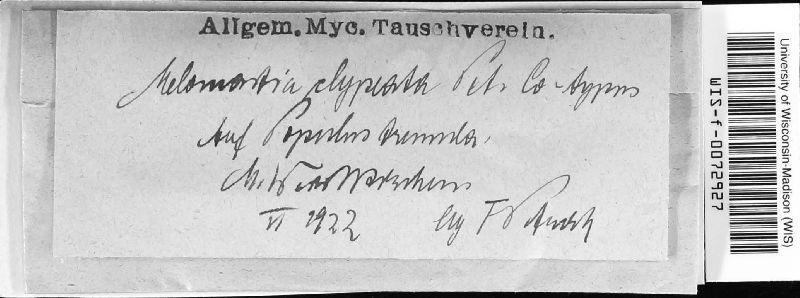 Allgem. Myc. Tauschverein.
Melomastia clypeata Pet. Co-typus
Auf Populus tremula.
VI 1922 leg F Petrak
University of Wisconsin-Madison (WIS)
WIS-f-0072927